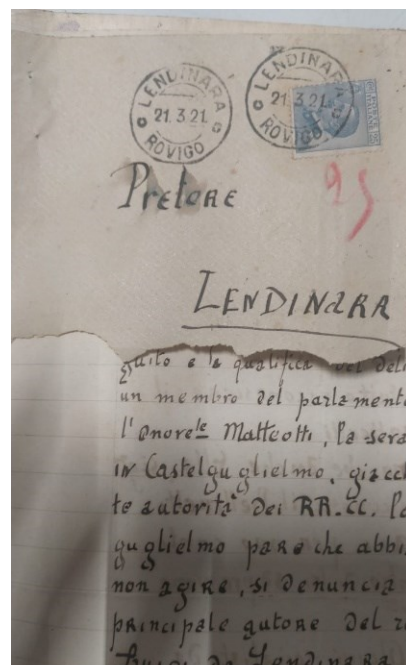 LENDINARA
21.3.21.
ROVIGO
LENDINARA
21.3.21.
ROVIGO
Pretore
25
LENDINARA
guito e la qualifica del deli
un membro del parlamento
l'onorele Matteotti, la sera
in Castelguglielmo, giacch
te autorità dei RR.CC. lo
guglielmo pare che abbi
non agire, si denuncia
principale autore del r
Luigi da Lendinara